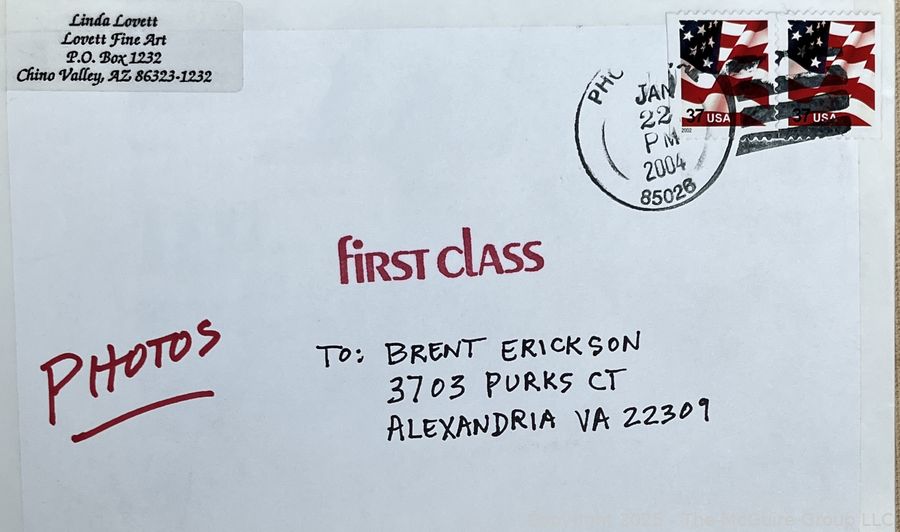 Linda Lovett
Lovett Fine Art
P.O. Box 1232
Chino Valley, AZ 86323-1232
37 USA
37 USA
2002
JAN
22
PM
2004
85026
first class
PHOTOS
TO: BRENT ERICKSON
3703 PURKS CT
ALEXANDRIA VA 22309
Copyright 2025 - The McGuire Group LLC